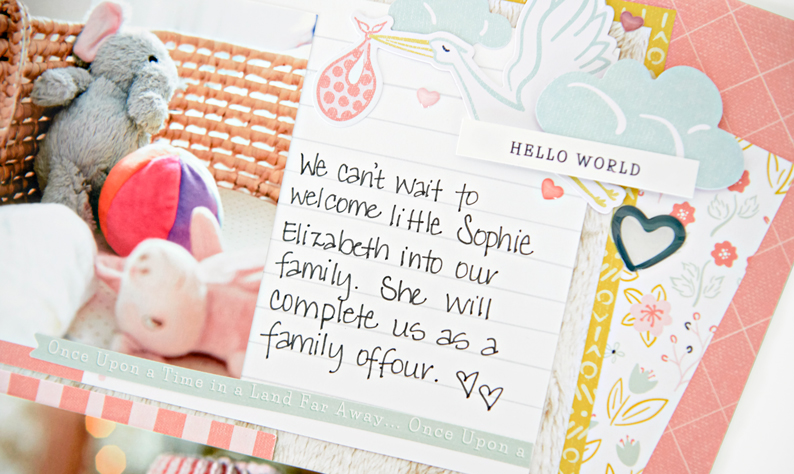 HELLO WORLD
We can't wait to
welcome little Sophie
Elizabeth into our
family. She will
complete us as a
family of four. ♡♡
Once Upon a Time in a Land Far Away... Once Upon a